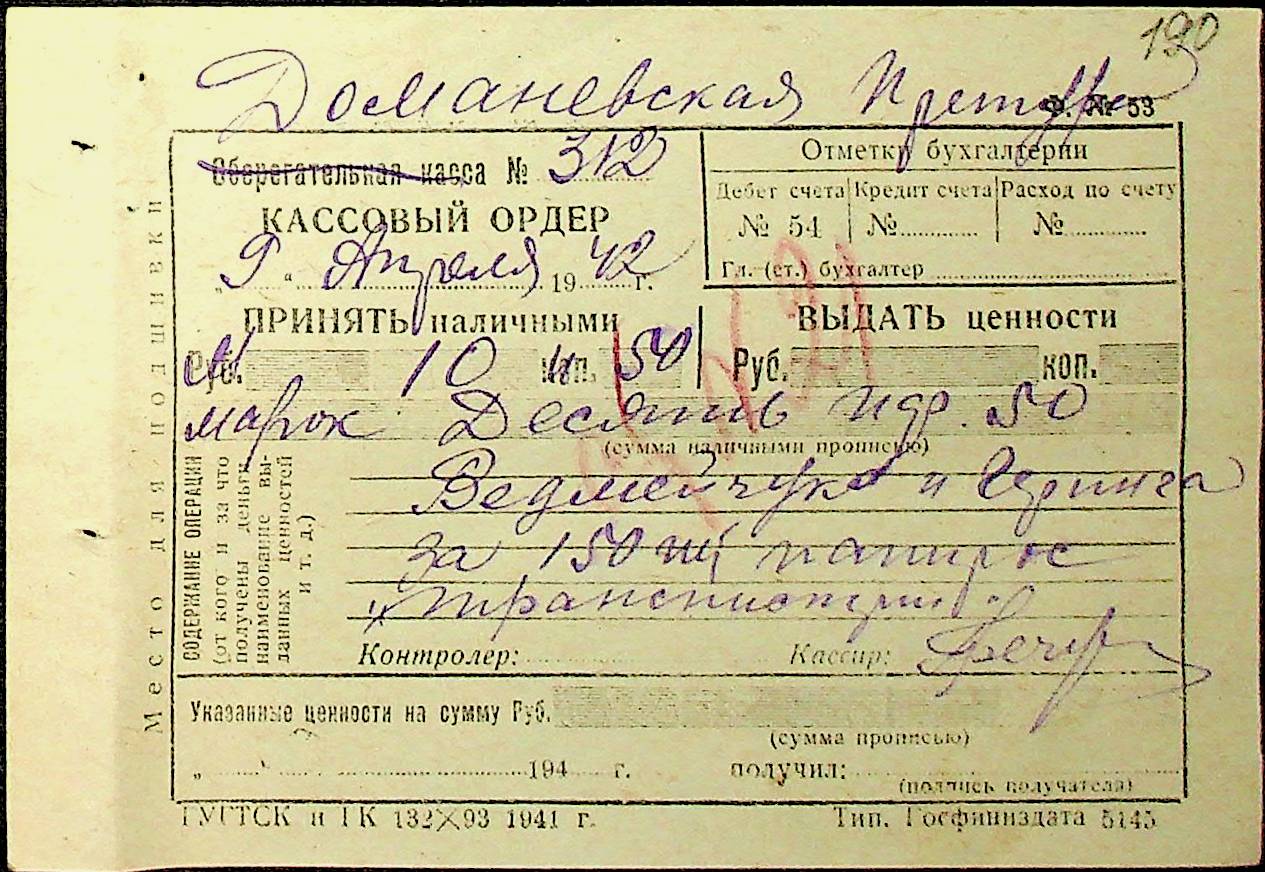 190
Доманевская Претура
Ф. № 53
Сберегательная касса № 312
КАССОВЫЙ ОРДЕР
„9“ Апреля 1942 г.
Отметки бухгалтерии
Дебет счета Кредит счета Расход по счету
№ 54 № №
Гл. (ст.) бухгалтер
ПРИНЯТЬ наличными
ВЫДАТЬ ценности
Руб. 10 коп. 50
Руб. коп.
марок Десять пфр. 50
(сумма наличными прописью)
СОДЕРЖАНИЕ ОПЕРАЦИИ
(от кого и за что
получены деньги,
наименование вы-
данных ценностей
и т. д.)
Ведмейчука и
за 150 шт папирос
Контролер: Кассир:
Указанные ценности на сумму Руб.
(сумма прописью)
„ “ 194 г. получил:
(подпись получателя)
Место для подшивки
ГУГТСК и ГК 132X93 1941 г.
Тип. Госфиниздата 5145